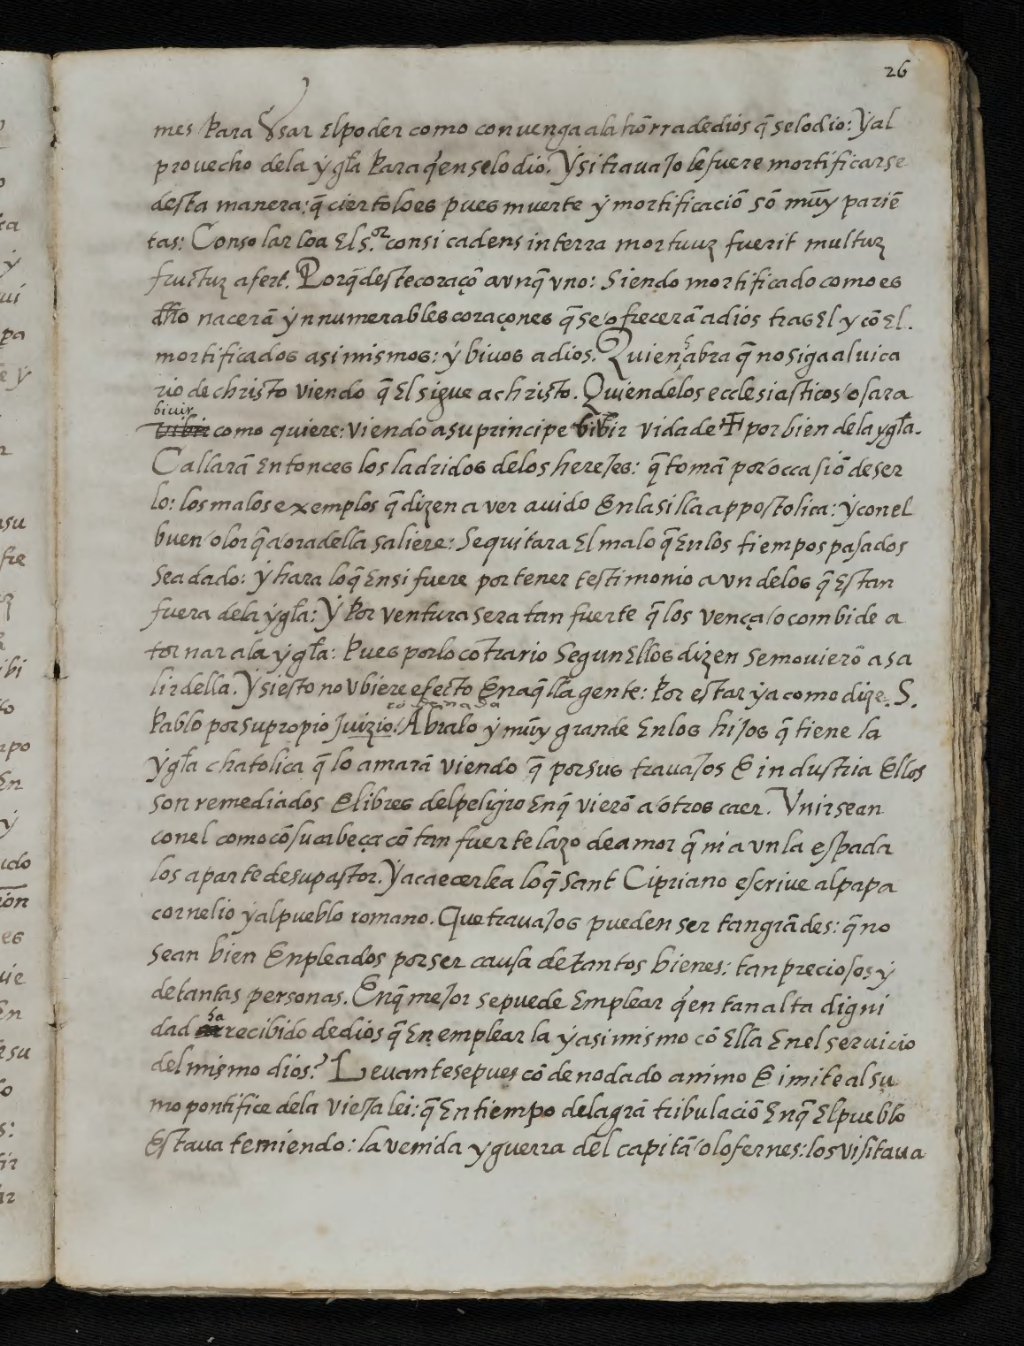 26
mes para Usar El poder como convenga a la hõrra de dios q̃ se lo dio: Y al
provecho dela ygła para q̃en se lo dio. Y si travajo le fuere mortificarse
desta manera: q̃ cierto lo es pues muerte y mortificaciõ sõ muy pariẽ
tas: Consolar loa El S.or con si cadens in terra mortuuʒ fuerit multuʒ
fructuʒ afert. Porq̃ deste coraçõ avnq̃ vno: siendo mortificado como es
dħo naceran ynnumerables coraçones q̃ se ofrecerã a dios tras El y cõ El.
mortificados asi mismos: y bivos a dios. Quien abra q̃ no siga al vica
rio de christo viendo q̃ El sigue a christo. Quien delos ecclesiasticos osara
bivir
como quiere: viendo a su principe bibir vida de ✝ por bien dela ygła.
Callarã Entonces los ladridos delos herejes: q̃ tomã por occasiõ de ser
lo: los malos exemplos q̃ dizen aver avido En la silla appostolica: y con el
buen olor q̃ aora della saliere: Se quitara El malo q̃ En los tiempos pasados
sea dado: y hara lo q̃ En si fuere por tener testimonio avn delos q̃ Estan
fuera dela ygła: Y por ventura sera tan fuerte q̃ los vença o combide a
tornar ala ygła: pues por lo cõtrario segun Ellos dizen se moviero᷉ a sa
lir della. Y si esto no Ubiere efecto En aq̃lla gente: por estar ya como dize. S.
cõdenada
Pablo por su propio juizio: Abralo y muy grande En los hijos q̃ tiene la
ygła chatolica q̃ lo amarã viendo q̃ por sus travajos E industria Ellos
son remediados E libres del peligro En q̃ vierõ a otros caer. Unirsean
con el como cõ su cabeça cõ tan fuerte lazo de amor q̃ ni avn la espada
los aparte de su pastor. Y acaecerlea lo q̃ Sant Cipriano escrive al papa
cornelio y al pueblo romano. Que travajos pueden ser tan grãdes: q̃ no
sean bien Enpleados por ser causa de tantos bienes: tan preciosos y
de tantas personas. En q̃ mejor se puede Emplear q̃en tan alta digni
ha
dad recibido de dios q̃ En emplearla y asi mismo cõ Ella En el servicio
del mismo dios? Levantese pues cõ denodado animo E imite al su
mo pontifice dela vieja lei: q̃ En tiempo dela grã tribulaciõ En q̃ El pueblo
Estava temiendo: la venida y guerra del capitã olofernes: los visitava